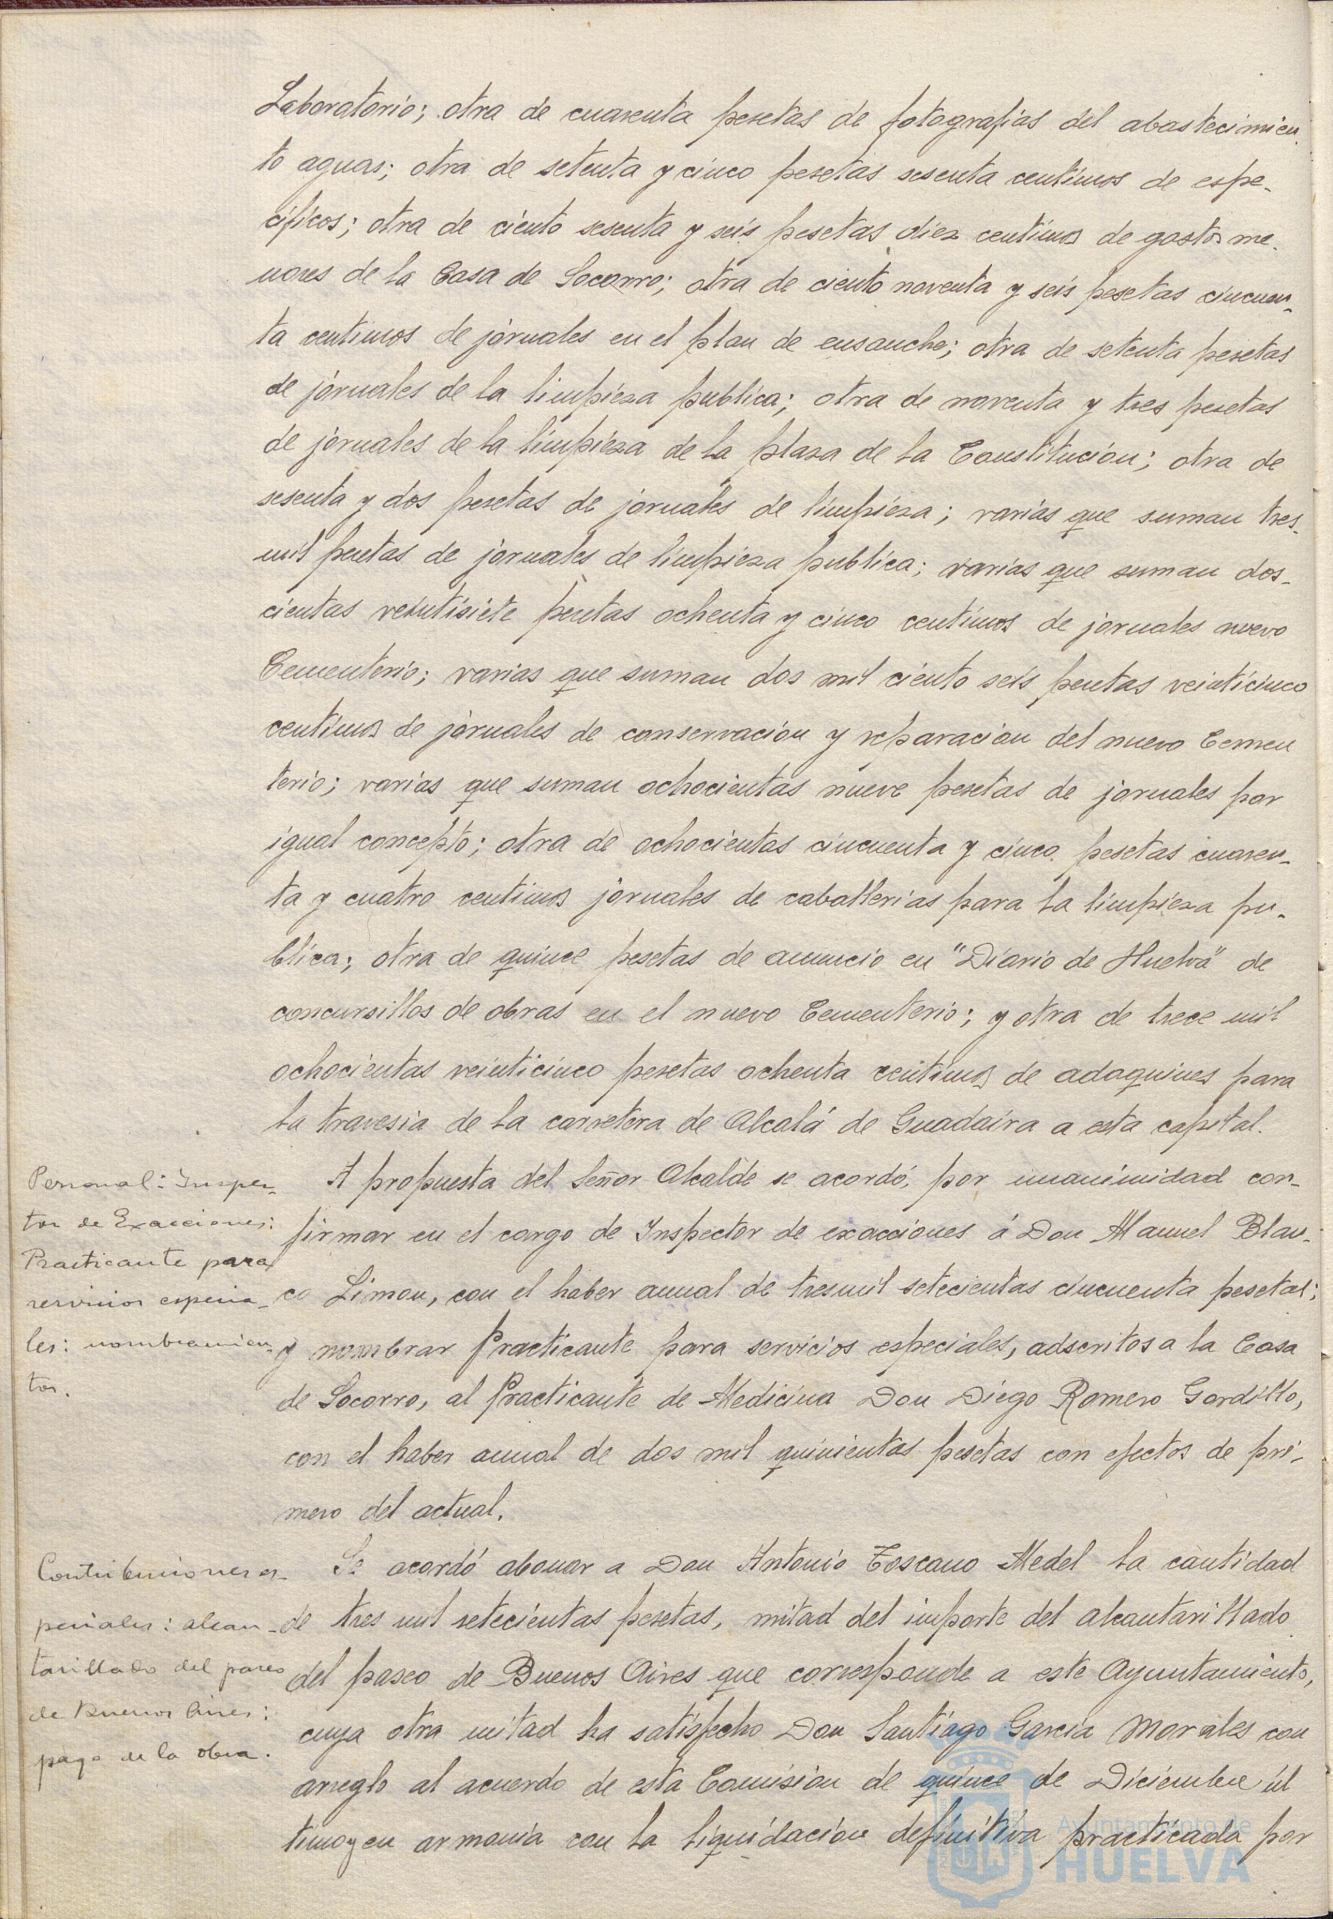 Laboratorio; otra de cuarenta pesetas de fotografias del abastecimien
to aguas; otra de setenta y cinco pesetas sesenta centimos de espe-
cificos; otra de ciento sesenta y seis pesetas diez centimos de gastos me-
nores de la Casa de Socorro; otra de ciento noventa y seis pesetas cincuen-
ta centimos de jornales en el plan de ensanche; otra de setenta pesetas
de jornales de la limpieza publica; otra de noventa y tres pesetas
de jornales de la limpieza de la plaza de la Constitución; otra de
sesenta y dos pesetas de jornales de limpieza; varias que suman tres
mil pesetas de jornales de limpieza publica; varias que suman dos-
cientas veintisiete pesetas ochenta y cinco centimos de jornales nuevo
Cementerio; varias que suman dos mil ciento seis pesetas veinticinco
centimos de jornales de conservacion y reparacion del nuevo Cemen
terio; varias que suman ochocientas nueve pesetas de jornales por
igual concepto; otra de ochocientas cincuenta y cinco pesetas cuaren-
ta y cuatro centimos jornales de caballerias para la limpieza pu-
blica; otra de quince pesetas de anuncio en "Diario de Huelva" de
concursillos de obras en el nuevo Cementerio; y otra de trece mil
ochocientas veinticinco pesetas ochenta centimos de adoquines para
la travesia de la carretera de Alcalá de Guadaira a esta capital.
Personal: Inspec-
tor de Exacciones:
Practicante para
servicios especia-
les: nombramien-
tos.
A propuesta del Señor Alcalde se acordó, por unanimidad con-
firmar en el cargo de Inspector de exacciones á Don Manuel Blan-
co Limon, con el haber anual de tresmil setecientas cincuenta pesetas;
y nombrar Practicante para servicios especiales, adscritos a la Casa
de Socorro, al Practicante de Medicina Don Diego Romero Gordillo,
con el haber anual de dos mil quinientas pesetas con efectos de pri-
mero del actual.
Contribuciones es-
peciales: alcan-
tarillado del paseo
de Buenos Aires:
pago de la obra.
Se acordó abonar a Don Antonio Toscano Medel la cantidad
de tres mil setecientas pesetas, mitad del importe del alcantarillado
del paseo de Buenos Aires que corresponde a este Ayuntamiento,
cuya otra mitad ha satisfecho Don Santiago Garcia Morales con
arreglo al acuerdo de esta Comision de quince de Diciembre úl
timo y en armonia con la liquidación definitiva practicada por
Ayuntamiento de
HUELVA